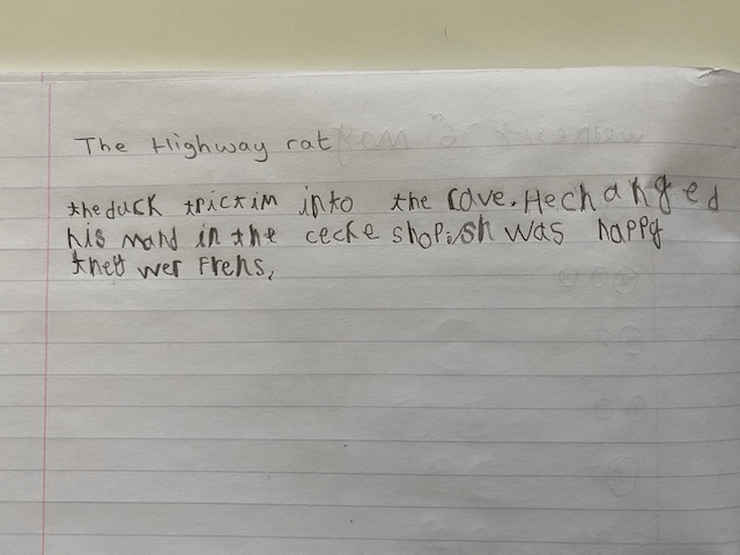 The Highway rat
the duck trictim into the cave. He changed
his mand in the cecke shop. sh was happy
they wer Frehs,